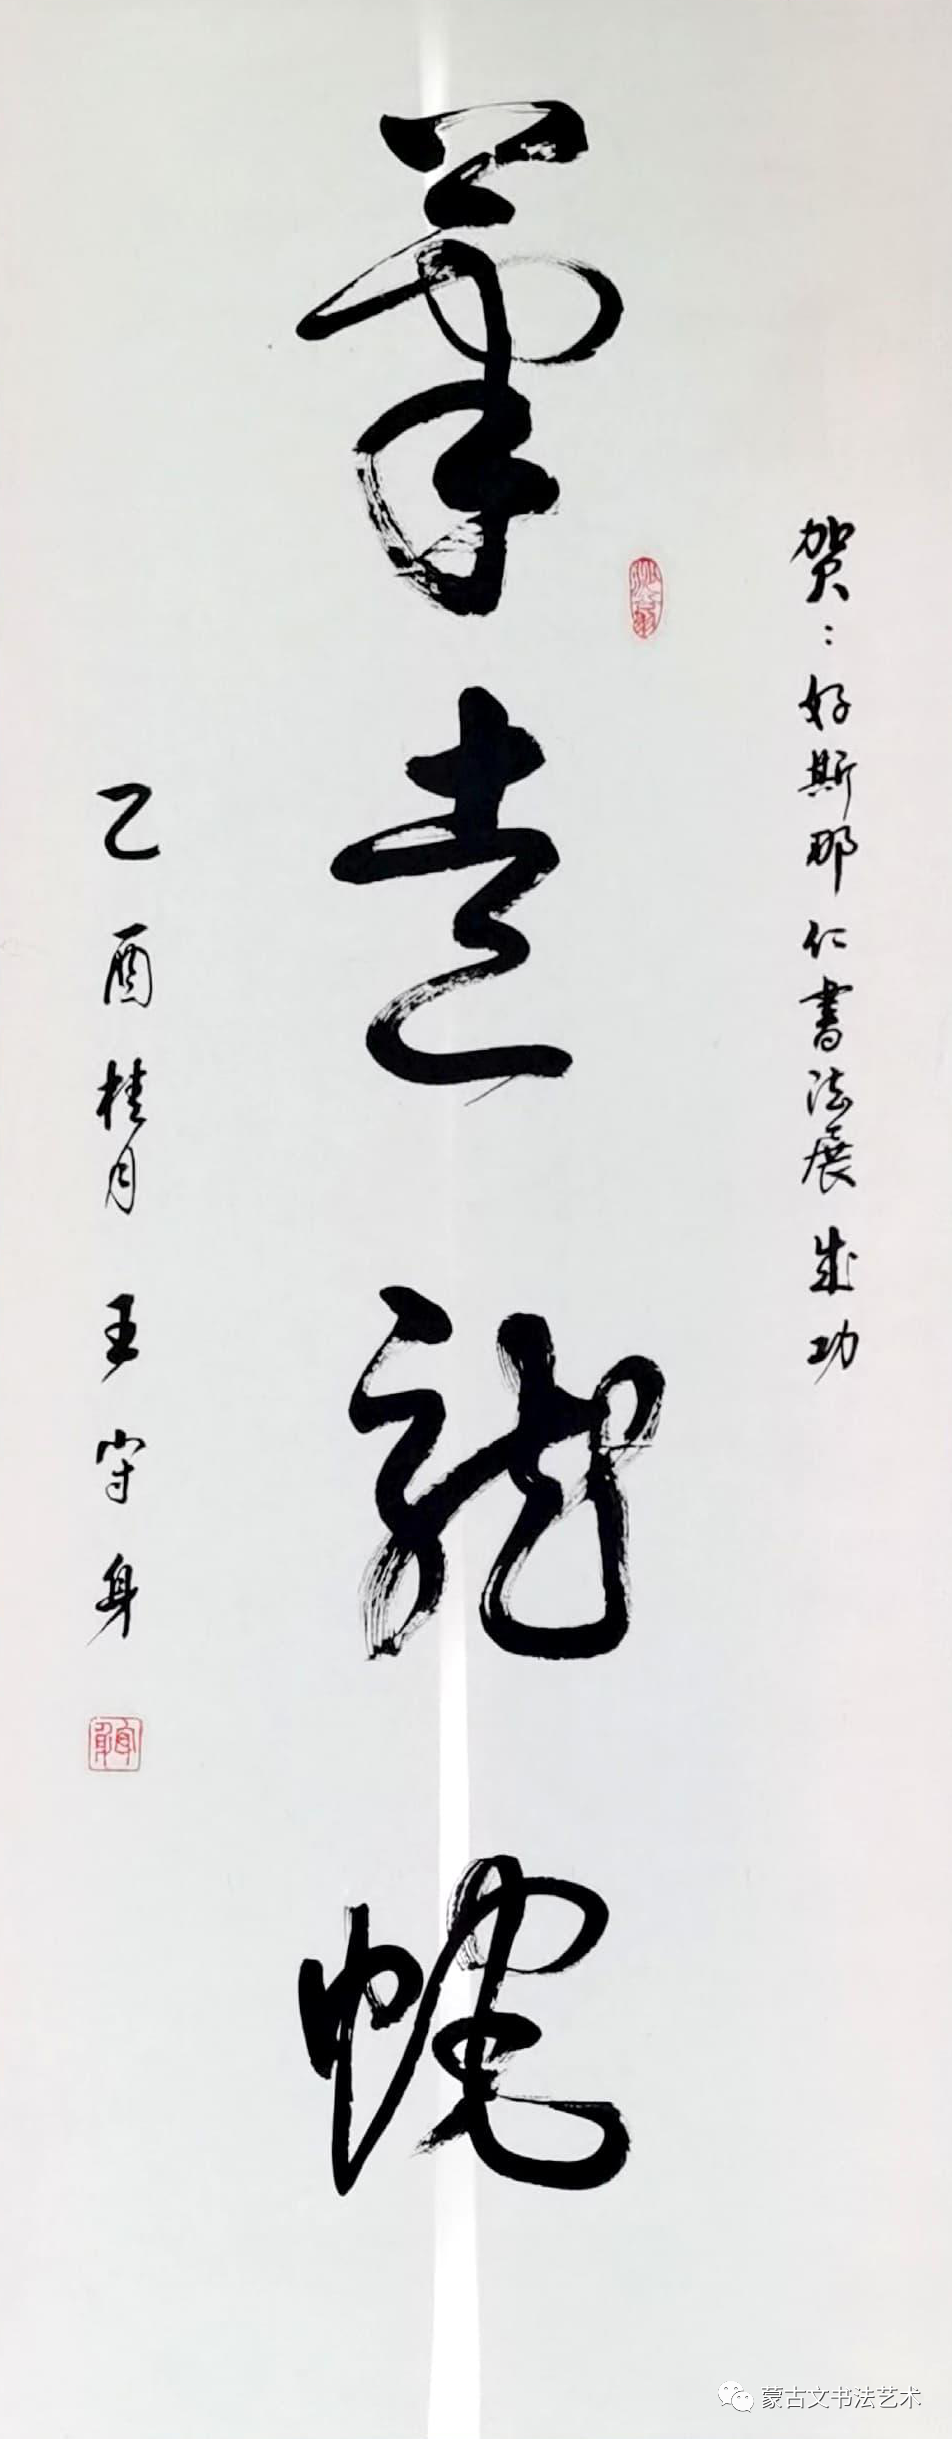 贺：好斯那仁書法展成功
筆走龍蛇
乙酉桂月 王守身
蒙古文书法艺术